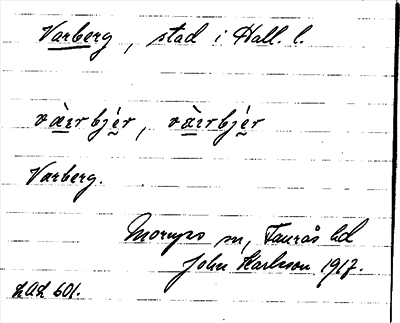 Varberg, stad i Hall. l.
væ̀rbjér, væ̀rbjér
Varberg.
Morups sn, Faurås hd
John Karlsson 1917.
LUL 601.